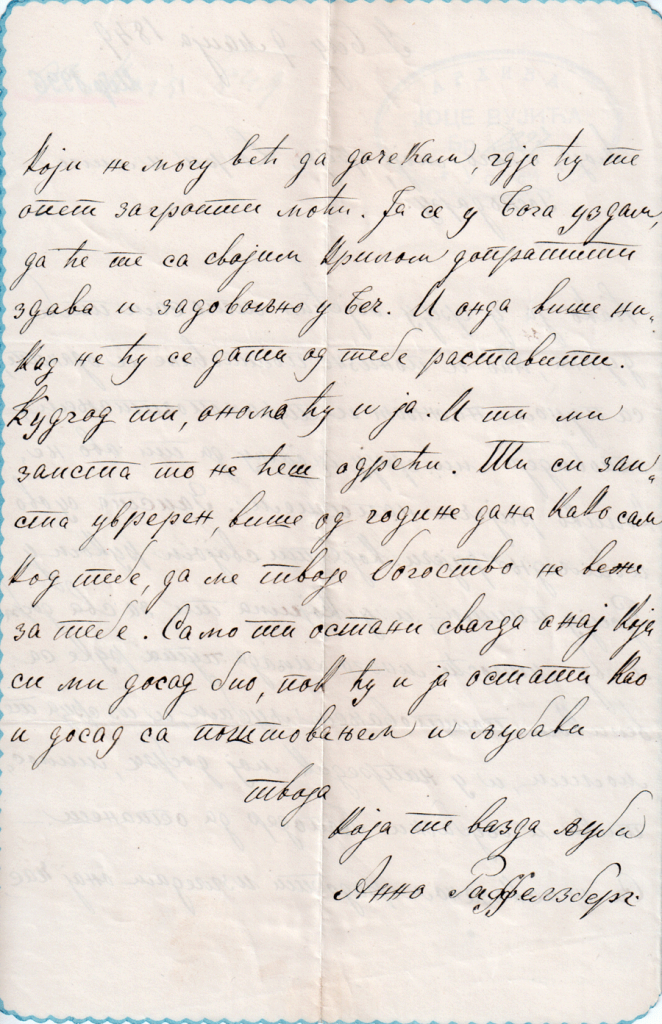 који не могу већ да дочекам, гдје ћу те
опет загрлити моћи. Ја се у Бога уздам,
да ће те са својим крилом допратити
здава и задовољно у Беч. И онда више ни„
кад не ћу се дати од тебе раставити.
Кудгод ти, онома ћу и ја. И ти ми
заиста то не ћеш одрећи. Ти си заи„
ста увререн, више од године дана како сам
код тебе, да ме твоје богоство не веже
за тебе. Само ти остани свагда онај који
си ми досад био, пак ћу и ја остати као
и досад са поштовањем и љубави
твоја
која те вазда љуби
Анна Раффелзберг.